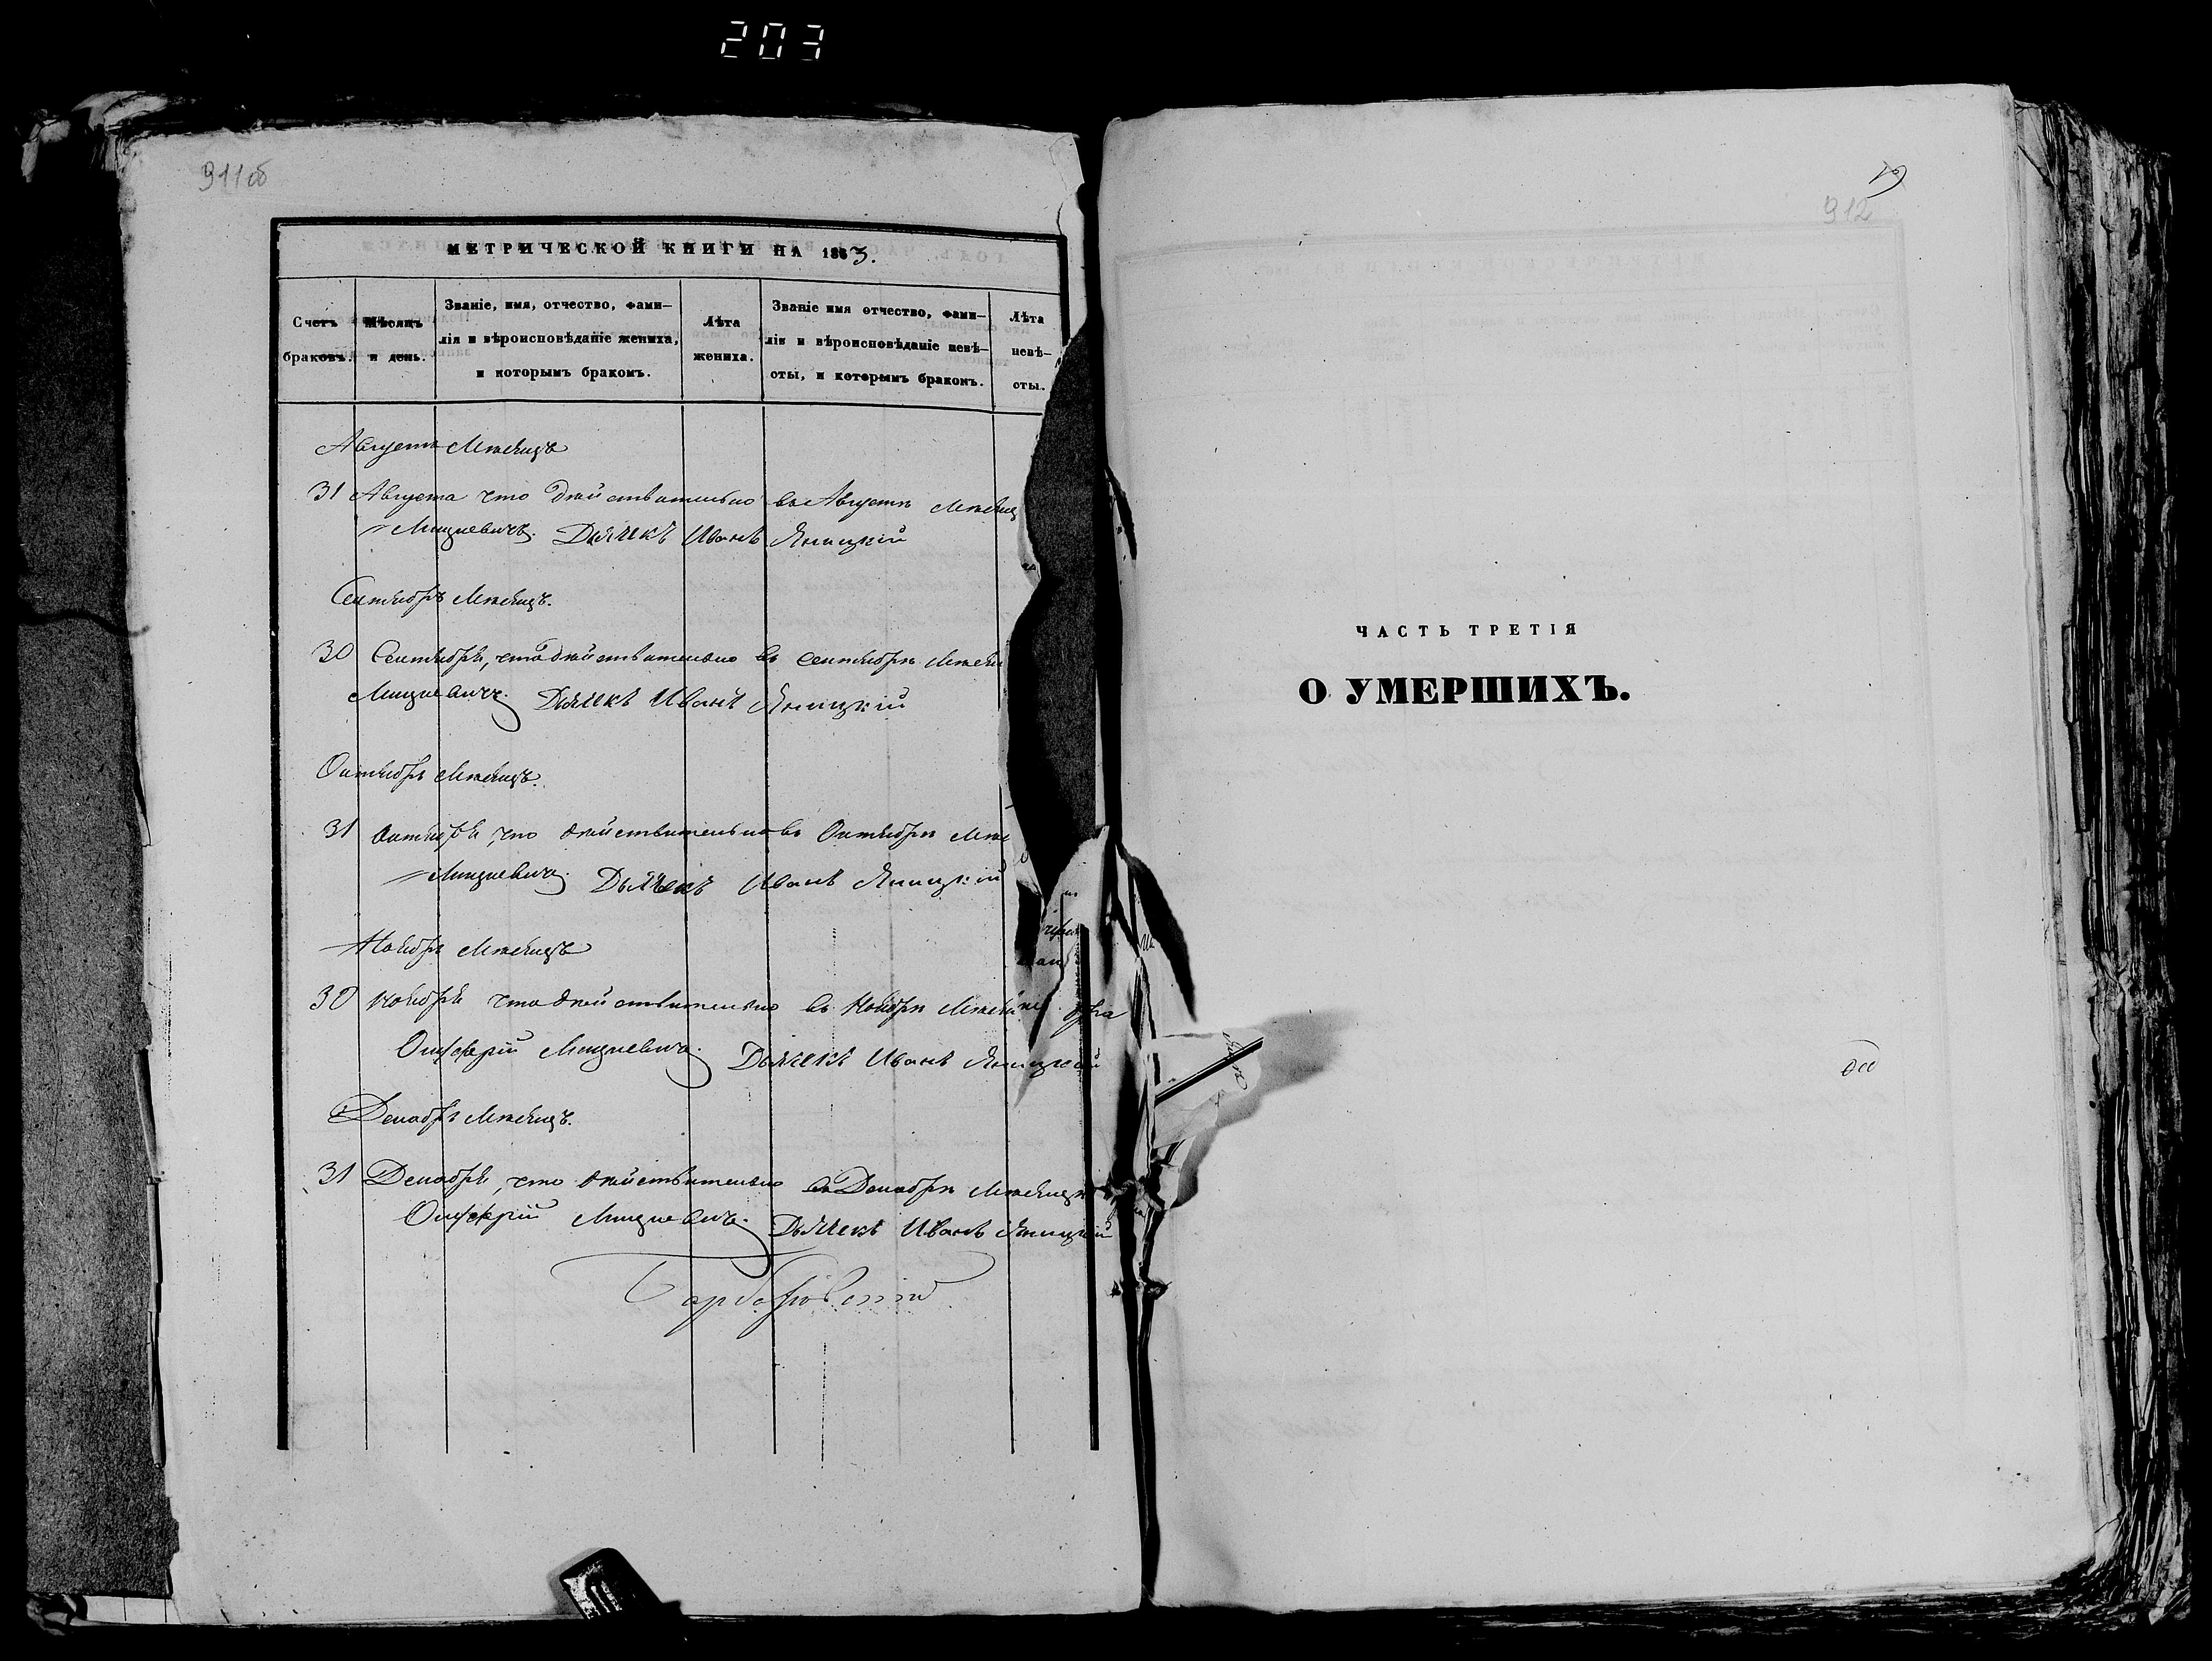 203
911об
МЕТРИЧЕСКОЙ КНИГИ НА 1863.
Счетъ браковъ.
Мѣсяцъ и день.
Званіе, имя, отчество, фами-
лія и вѣроисповѣданіе жениха,
и которымъ бракомъ.
Лѣта
жениха.
Званіе имя отчество, фами-
лія и вѣроисповѣданіе невѣ-
сты, и которымъ бракомъ.
Лѣта
невѣ-
сты.
Августъ Мѣсяцъ
31 Августа что дѣйствительно въ Августѣ Мѣсяц
Мицкевичъ. Дьячекъ Иванъ Яницкій
Сентябрь Мѣсяцъ.
30 Сентября, что дѣйствительно въ Сентябрѣ Мѣсяц
Мицкевичъ. Дьячекъ Иванъ Яницкій
Октябрь Мѣсяцъ.
31 Октября, что дѣйствительно въ Октябрѣ Мѣс
Мицкевичъ. Дьячекъ Иванъ Яницкій
Ноябрь Мѣсяцъ
30 Ноября что дѣйствительно въ Ноябрѣ Мѣсяцѣ бра
Мицкевичъ. Дьячекъ Иванъ Яницкій
Декабрь Мѣсяцъ.
31 Декабря, что дѣйствительно въ Декабрѣ Мѣсяцѣ
Мицкевичъ. Дьячекъ Иванъ Яницкій
912
ЧАСТЬ ТРЕТІЯ
О УМЕРШИХЪ.